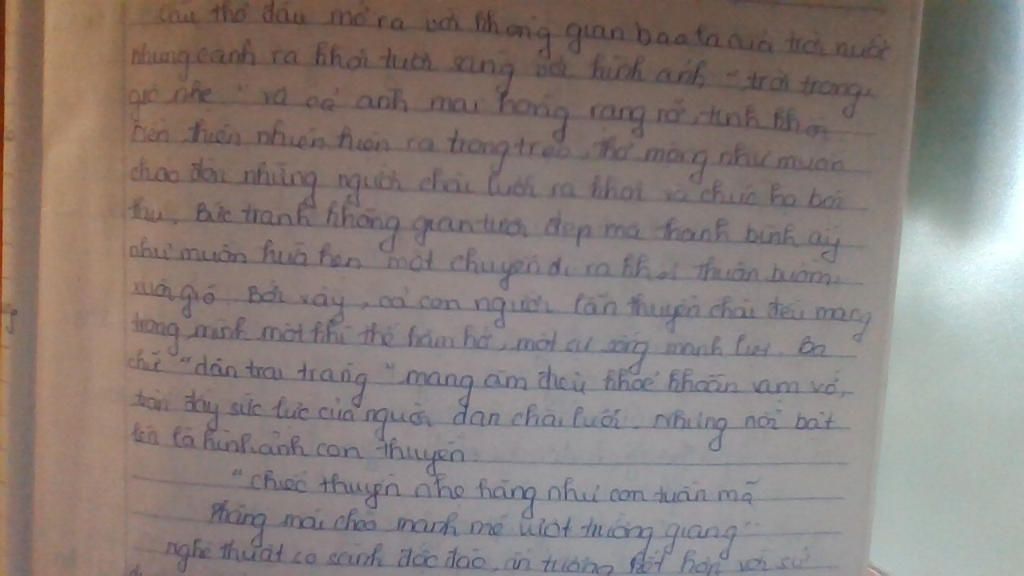 Câu thơ đầu mở ra với không gian bao la của trời nước
nhưng cảnh ra khơi tươi sáng với hình ảnh "trời trong,
gió nhẹ" và cả ánh mai hồng rạng rỡ, tinh khôi
nên thiên nhiên hiện ra trong trẻo, thơ mộng như muốn
chào đón những người chài lưới ra khơi và chúc họ bội
thu. Bức tranh không gian tươi đẹp mà thanh bình ấy
như muốn hứa hẹn một chuyến đi ra khơi thuận buồm
xuôi gió. Bởi vậy, cả con người lẫn thuyền chài đều mang
trong mình một khí thế hăm hở, một sống mãnh liệt. Ba
chữ "dân trai tráng" mang âm điệu khoẻ khoắn vạm vỡ,
tràn đầy sức lực của người dân chài lưới. Nhưng nổi bật
lên là hình ảnh con thuyền
"Chiếc thuyền nhẹ hăng như con tuấn mã
Phăng mái chèo mạnh mẽ vượt trường giang"
nghệ thuật so sánh độc đáo, ấn tượng kết hợp với sử